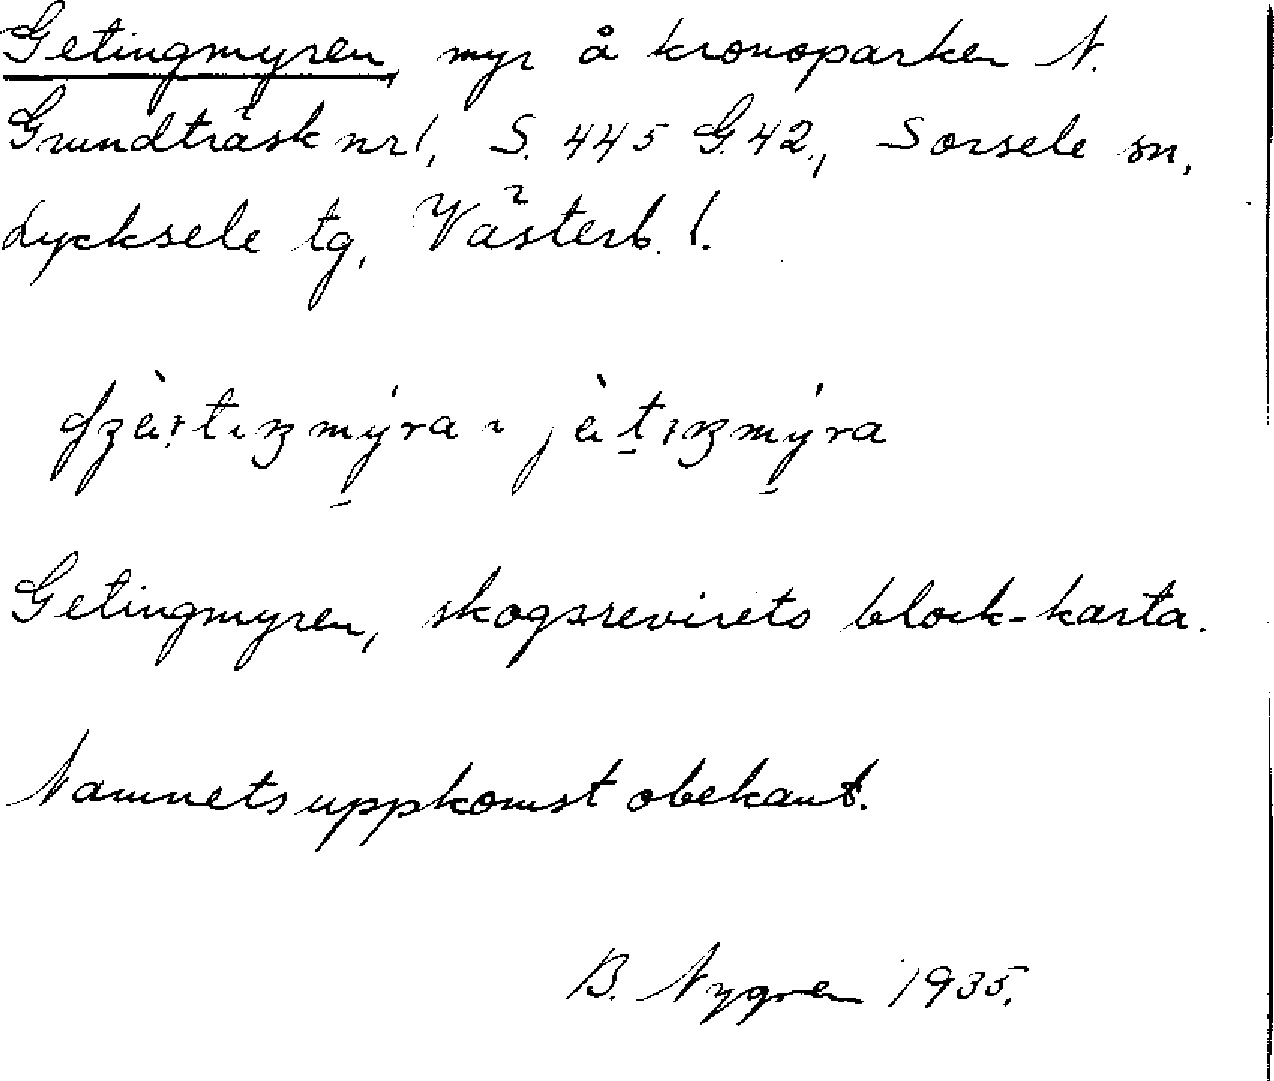 Getingmyren, myr å kronoparken N.
Grundträsk nr 1, S. 445 G. 42., Sorsele sn,
Lycksele tg, Västerb. l.
Getingmyren, skogsrevirets block-karta.
Namnets uppkomst obekant.
B. Nygren 1935.